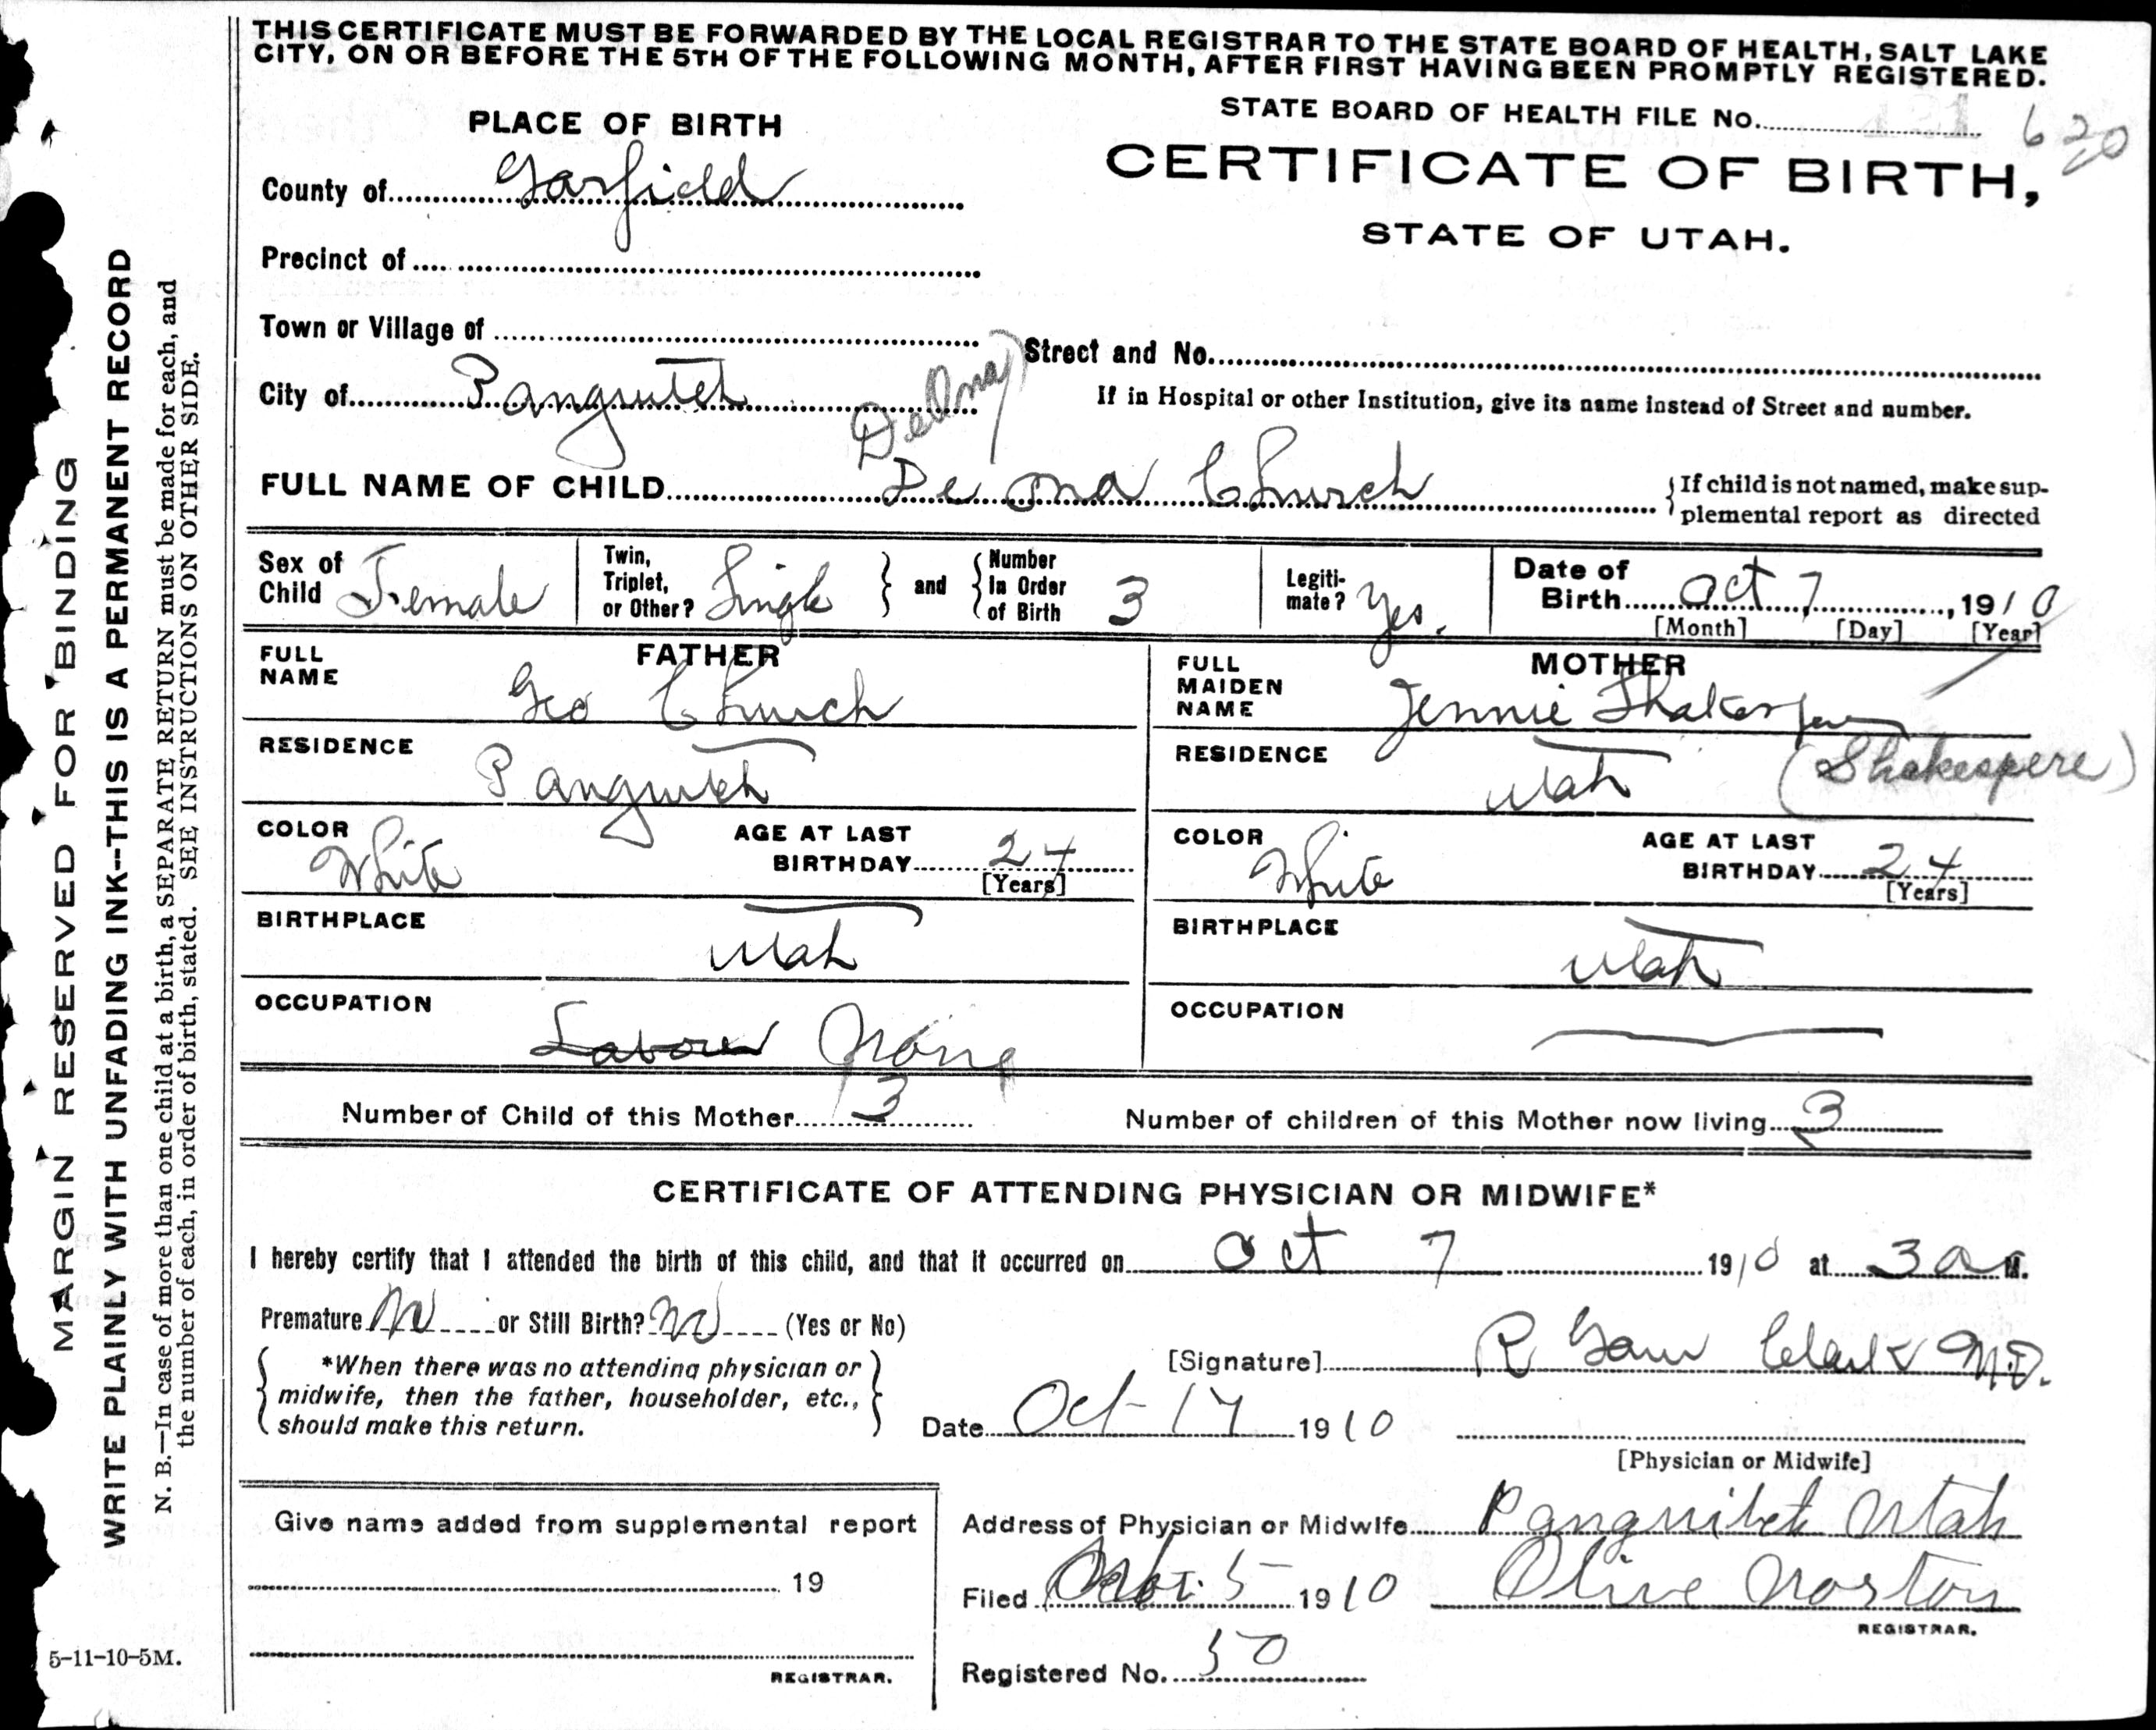 THIS CERTIFICATE MUST BE FORWARDED BY THE LOCAL REGISTRAR TO THE STATE BOARD OF HEALTH, SALT LAKE
CITY, ON OR BEFORE THE 5TH OF THE FOLLOWING MONTH, AFTER FIRST HAVING BEEN PROMPTLY REGISTERED.
STATE BOARD OF HEALTH FILE No. 620
PLACE OF BIRTH
CERTIFICATE OF BIRTH,
STATE OF UTAH.
County of Garfield
Precinct of
Town or Village of
Street and No.
City of Panguitch
If in Hospital or other Institution, give its name instead of Street and number.
DeOna
FULL NAME OF CHILD De Ona Church
{If child is not named, make sup-
plemental report as directed
Sex of Child Female
Twin, Triplet, or Other? Single } and { Number in Order of Birth 3
Legiti-mate? Yes.
Date of Birth Oct 7, 1910
[Month] [Day] [Year]
FATHER
FULL NAME Geo Church
MOTHER
FULL MAIDEN NAME Jennie Shakespere
RESIDENCE Panguitch
RESIDENCE Utah
(Shakespere)
COLOR White
AGE AT LAST BIRTHDAY 24
[Years]
COLOR White
AGE AT LAST BIRTHDAY 24
[Years]
BIRTHPLACE Utah
BIRTHPLACE Utah
OCCUPATION Laborer None
OCCUPATION
Number of Child of this Mother 3
Number of children of this Mother now living 3
CERTIFICATE OF ATTENDING PHYSICIAN OR MIDWIFE*
I hereby certify that I attended the birth of this child, and that it occurred on Oct 7 1910 at 3 a M.
Premature No or Still Birth? No (Yes or No)
{ *When there was no attending physician or
midwife, then the father, householder, etc.,
should make this return. }
[Signature] R Garn Clark M.D.
Date Oct 17 1910
[Physician or Midwife]
Give name added from supplemental report
19
REGISTRAR.
Address of Physician or Midwife Panguitch Utah
Filed 5 1910 Olive Norton
REGISTRAR.
Registered No. 50
MARGIN RESERVED FOR BINDING
WRITE PLAINLY WITH UNFADING INK--THIS IS A PERMANENT RECORD
N. B.—In case of more than one child at a birth, a SEPARATE RETURN must be made for each, and
the number of each, in order of birth, stated. SEE INSTRUCTIONS ON OTHER SIDE.
5-11-10-5M.